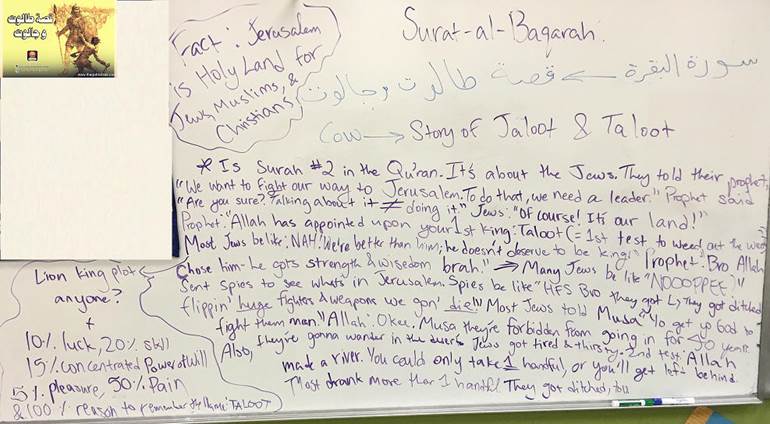 قصة طالوت
و جالوت
Fact: Jerusalem
is Holy Land for
Jews, Muslims, &
Christians
Surat-al-Baqarah:
سورة البقرة ← قصة طالوت وجالوت
Cow → Story of Jaloot & Taloot
* Is Surah #2 in the Qu'ran. It's about the Jews. They told their prophet,
"We want to fight our way to Jerusalem. To do that, we need a leader." Prophet said
"Are you sure? Talking about it ≠ doing it." Jews: "Of course! It's our land!"
Prophet: "Allah has appointed upon your 1st king: Taloot (= 1st test to weed out the
Most Jews be like: NAH! We're better than him; he doesn't deserve to be king!" Prophet: "Bro Allah
Chose him- he gots strength & wisedom brah." ⇒ Many Jews be like "NOOOPPEE)"
Sent spies to see whats in Jerusalem. Spies be like "HFS Bro they got L, They got ditched
flippin' huge fighters & weapons we gon' die!" Most Jews told Musa "Yo get yo God to
fight them man." Allah: Okee. Musa they're forbidden from going in for 40 years.
Also, they're gonna wander in the Jews got tired & thirsty. 2nd test: Allah
made a river. You could only take 1 handful, or you'll get left behind.
Most drank more than 1 handful They got ditched, too
Lion king plot
anyone?
+
10% luck, 20% skill
15% concentrated Power of Will
5% pleasure, 50% Pain
& 100% reason to remember the Name: TALOOT